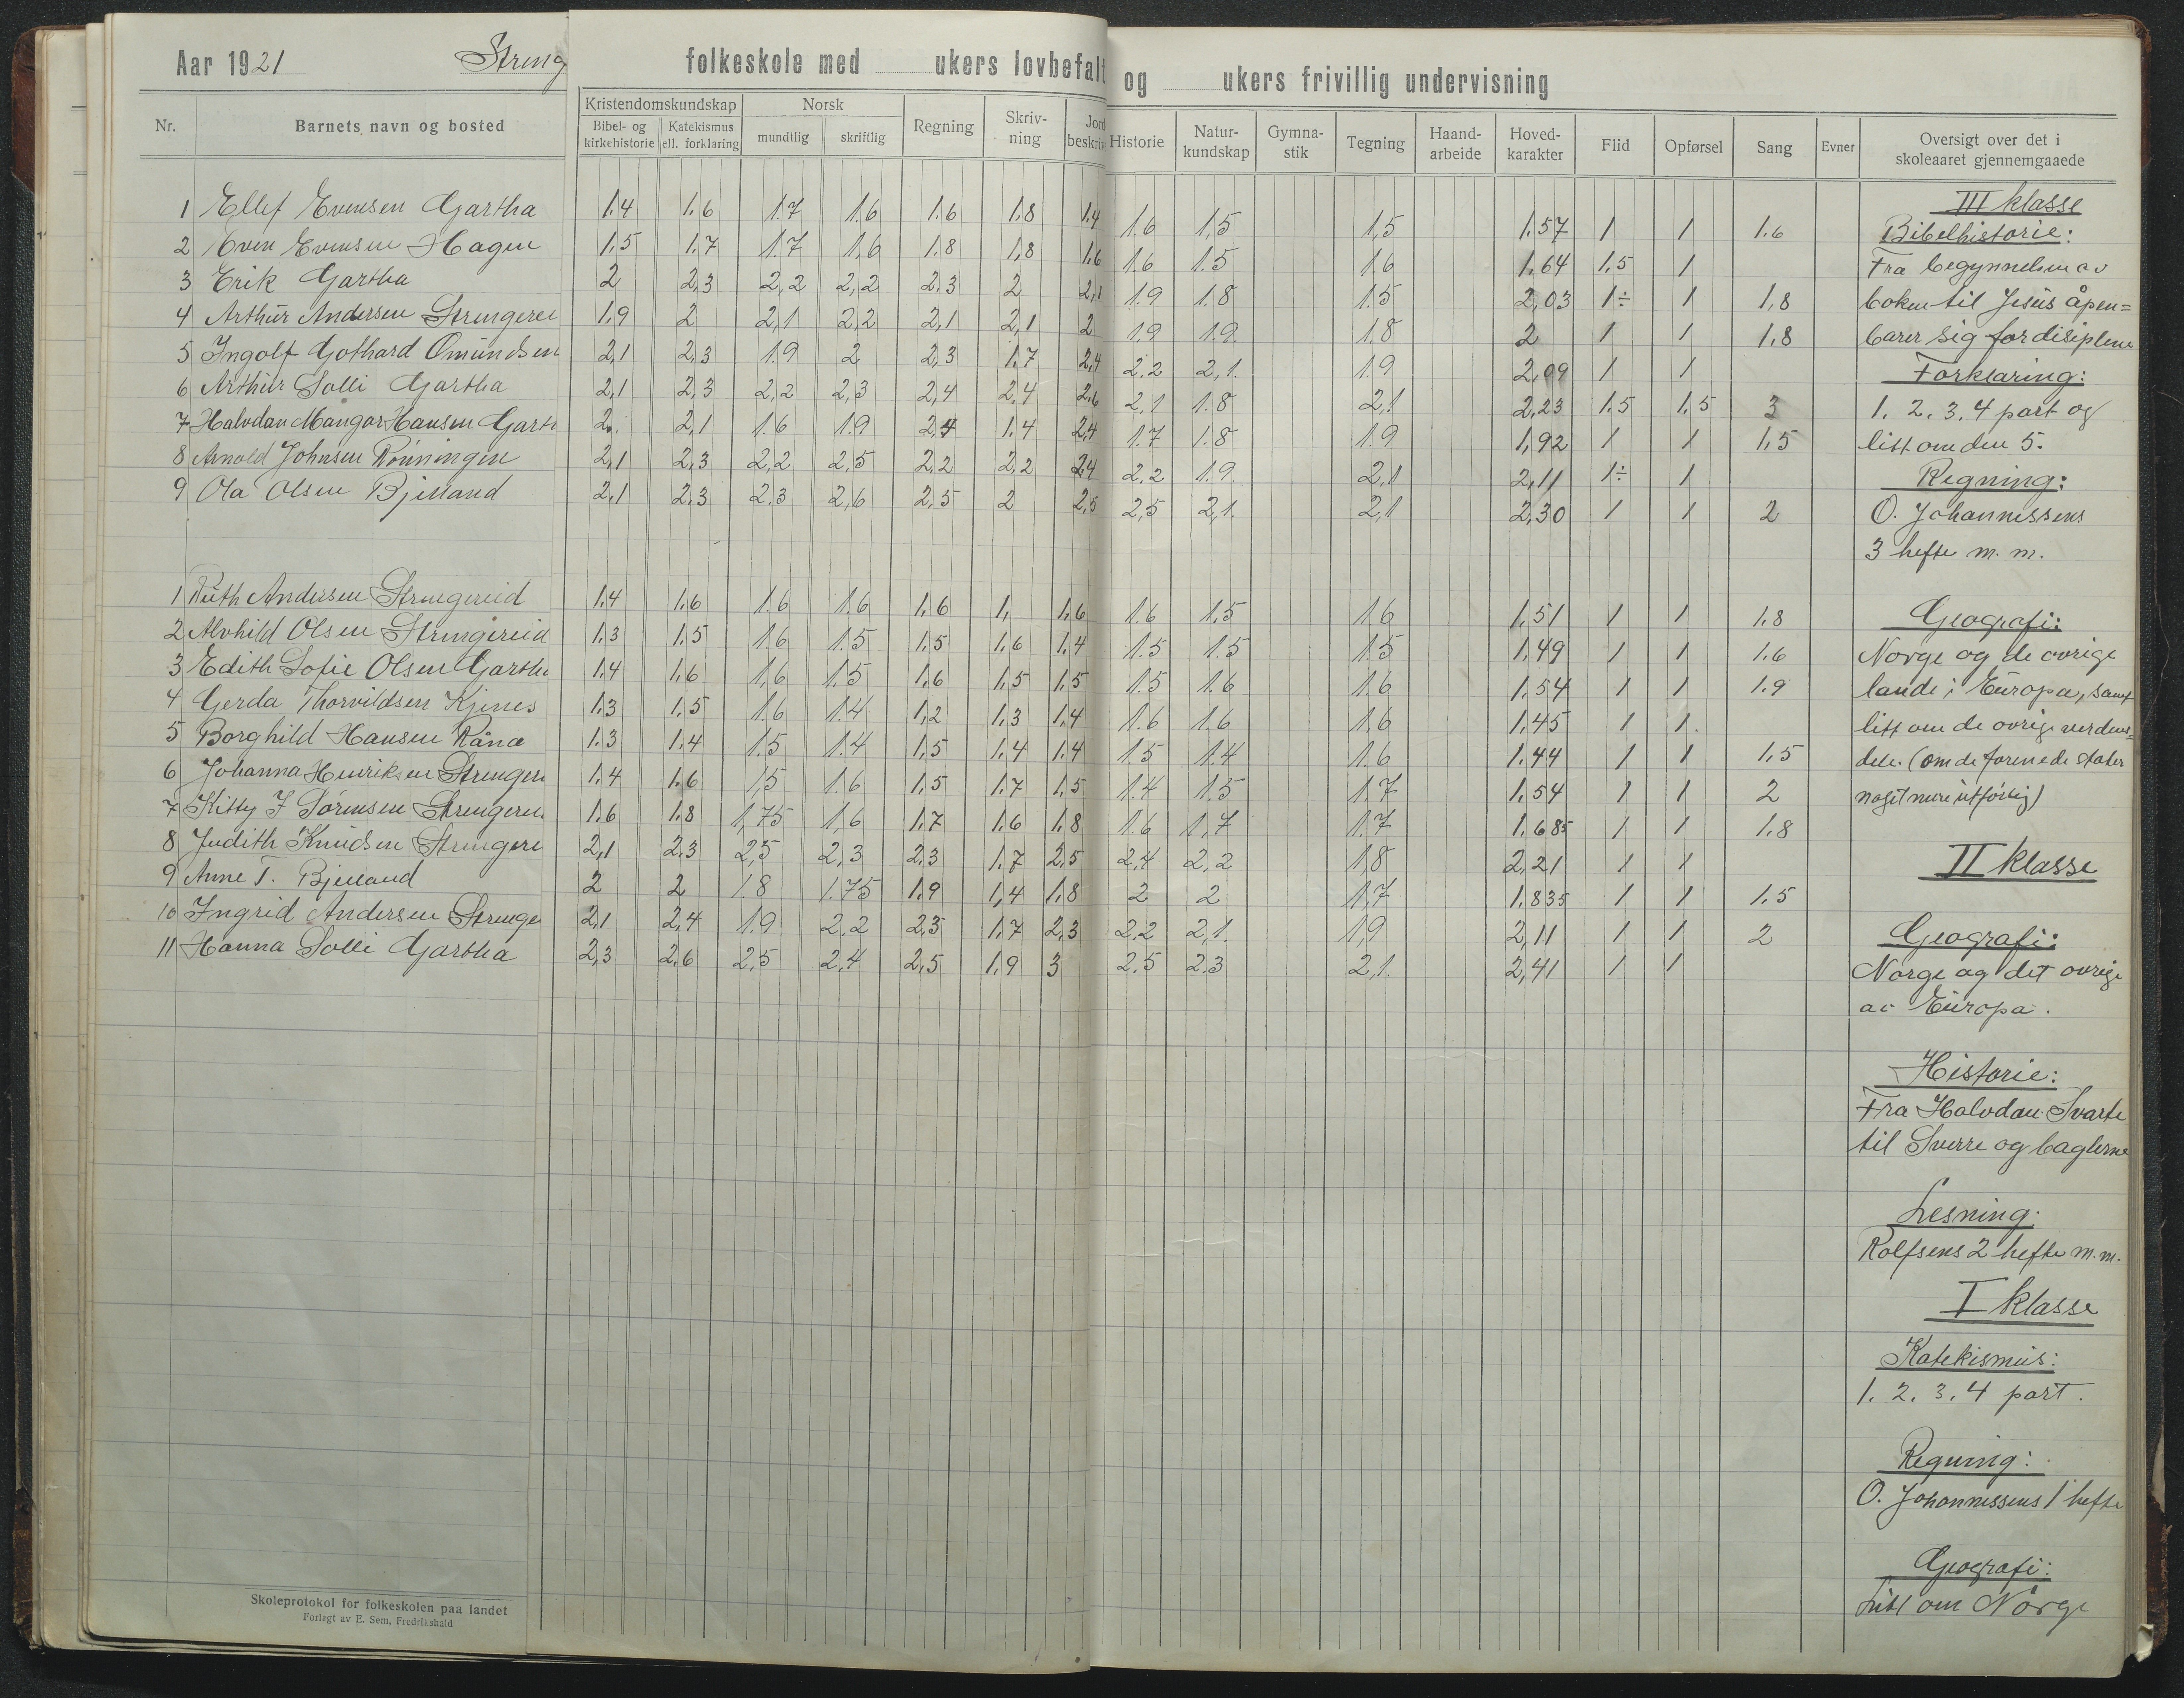 Aar 1921 Streng folkeskole med ukers lovbefalt og ukers frivillig undervisning
Nr. Barnets navn og bosted Kristendomskundskap Bibel- og kirkehistorie Katekismus ell. forklaring Norsk mundtlig skriftlig Regning Skriv-ning Jord beskriv Historie Natur-kundskap Gymna-stik Tegning Haand-arbeide Hoved-karakter Flid Opførsel Sang Evner Oversigt over det i skoleaaret gjennemgaaede
1 Ellef Evensen Gartha 1.4 1.6 1.7 1.6 1.6 1.8 1.4 1.6 1.5 1,5 1.57 1 1 1.6
2 Even Evensen Hagen 1.5 1.7 1.7 1,6 1.8 1,8 1.6 1.6 1.5 1.6 1.64 1.5 1
3 Erik Gartha 2 2,3 2,2 2,2 2.3 2 2,1 1.9 1.8 1.5 2,03 1÷ 1 1,8
4 Arthur Andersen Strengerei 1.9 2 2,1 2,2 2,1 2,1 2 1.9 1.9. 1,8 2 1 1 1.8
5 Ingolf Gothard Omundsen 2,1 2,3 1.9 2 2,3 1.7 2,4 2.2 2,1. 1.9 2,09 1 1
6 Arthur Solli Gartha 2,1 2,3 2,2 2,3 2,4 2.4 2.6 2,1 1.8 2,1 2,23 1.5 1,5 3
7 Halvdan Mangor Hansen Garth 2. 2,1 1.6 1.9 2,4 1.4 2,4 1.7 1.8 1.9 1,92 1 1 1,5
8 Arnold Johnsen Rønningen 2,1 2,3 2,2 2,5 2,2 2,2 2,4 2.2 1.9. 2,1 2,11 1÷ 1
9 Ola Olsen Bjelland 2,1 2.3 2.3 2,6 2,5 2 2,5 2,5 2,1. 2,1 2,30 1 1 2
1 Ruth Andersen Strengereid 1.4 1.6 1.6 1.6 1,6 1, 1,6 1.6 1.5 1.6 1,51 1 1 1.8
2 Alvhild Olsen Strengereid 1.3 1.5 1.6 1.5 1,5 1,6 1,4 1.5 1.5 1.5 1,49 1 1 1.6
3 Edith Sofie Olsen Gartha 1.4 1.6 1,6 1.5 1.6 1,5 1,5 1.5 1.6 1.6 1.54 1 1 1.9
4 Gerda Thorvildsen Kjenes 1.3 1.5 1.6 1.4 1,2 1.3 1,4 1.6 1.6 1.6 1.45 1 1.
5 Borghild Hansen Rånæ 1.3 1.4 1.5 1.4 1,5 1.4 1.4 1.5 1.4 1.6 1.44 1 1 1,5
6 Johanna Henriksen Strengere 1.4 1.6 1,5 1.6 1,5 1.7 1,5 1.4 1.5 1.7 1.54 1 1 2
7 Kitty J Sørensen Strengere 1.6 1.8 1,75 1,6 1.7 1.6 1.8 1.6 1,7 1.7 1.685 1 1 1.8
8 Judith Knudsen Strengere 2,1 2.3 2,5 2,3 2.3 1.7 2.5 2.4 2,2 1,8 2,21 1 1
9 Anne T. Bjelland 2 2 1.8 1.75 1.9 1,4 1.8 2 2 1,7 1.835 1 1 1.5
10 Ingrid Andersen Strenge 2,1 2,4 1.9 2.2 2,3 1.7 2,3 2,2 2,1. 1,9 2,11 1 1 2
11 Hanna Solli Gartha 2,3 2.6 2,5 2,4 2,5 1.9 3 2.5 2.3 2,1. 2,41 1 1
III klasse
Bibelhistorie:
Fra begynnelsen av
boken til Jesus åpen=
barer sig for disiplene
Forklaring:
1. 2. 3. 4 part og
litt om den 5.
Regning:
O. Johannessens
3 hefte m. m.
Geografi:
Norge og de øvrige
lande i Europa, samt
litt om de øvrige verdens=
dele. (om de forenede stater
noget mere utførlig)
II klasse
Geografi:
Norge og det øvrige
av Europa.
Historie:
Fra Halvdan Svarte
til Sverre og baglerne
Lesning:
Rolfsens 2 hefte m. m.
I klasse
Katekismus:
1. 2. 3. 4 part.
Regning:
O. Johannessens 1 hefte
Geografi:
Litt om Norge
Skoleprotokol for folkeskolen paa landet
Forlagt av E. Sem, Fredrikshald